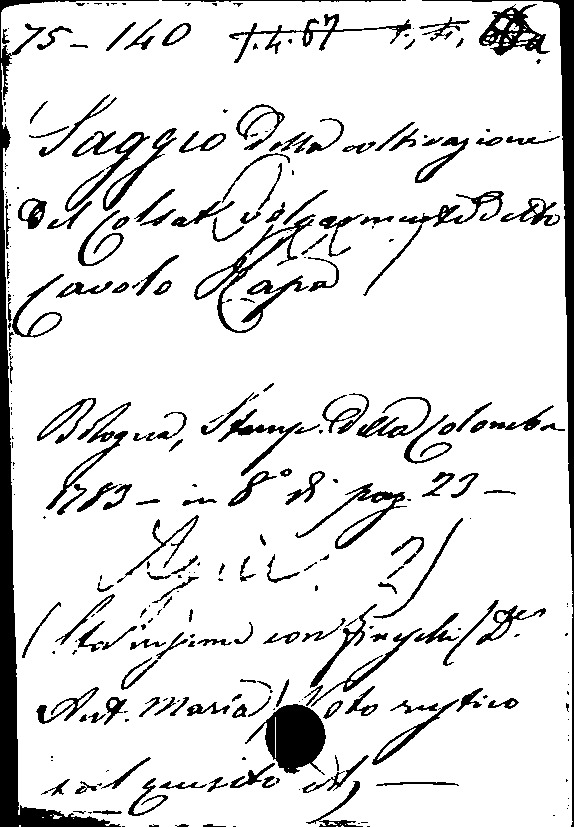 75-140 1.4.67
Saggio della coltivazione
del Colsat volgarmente detto
Cavolo Rapa
Bologna, Stamp. della Colomba
1783 – in 8° di pag. 23 –
2)
(Sta insieme con (Dr
Ant. Maria) Voto rustico
quesito